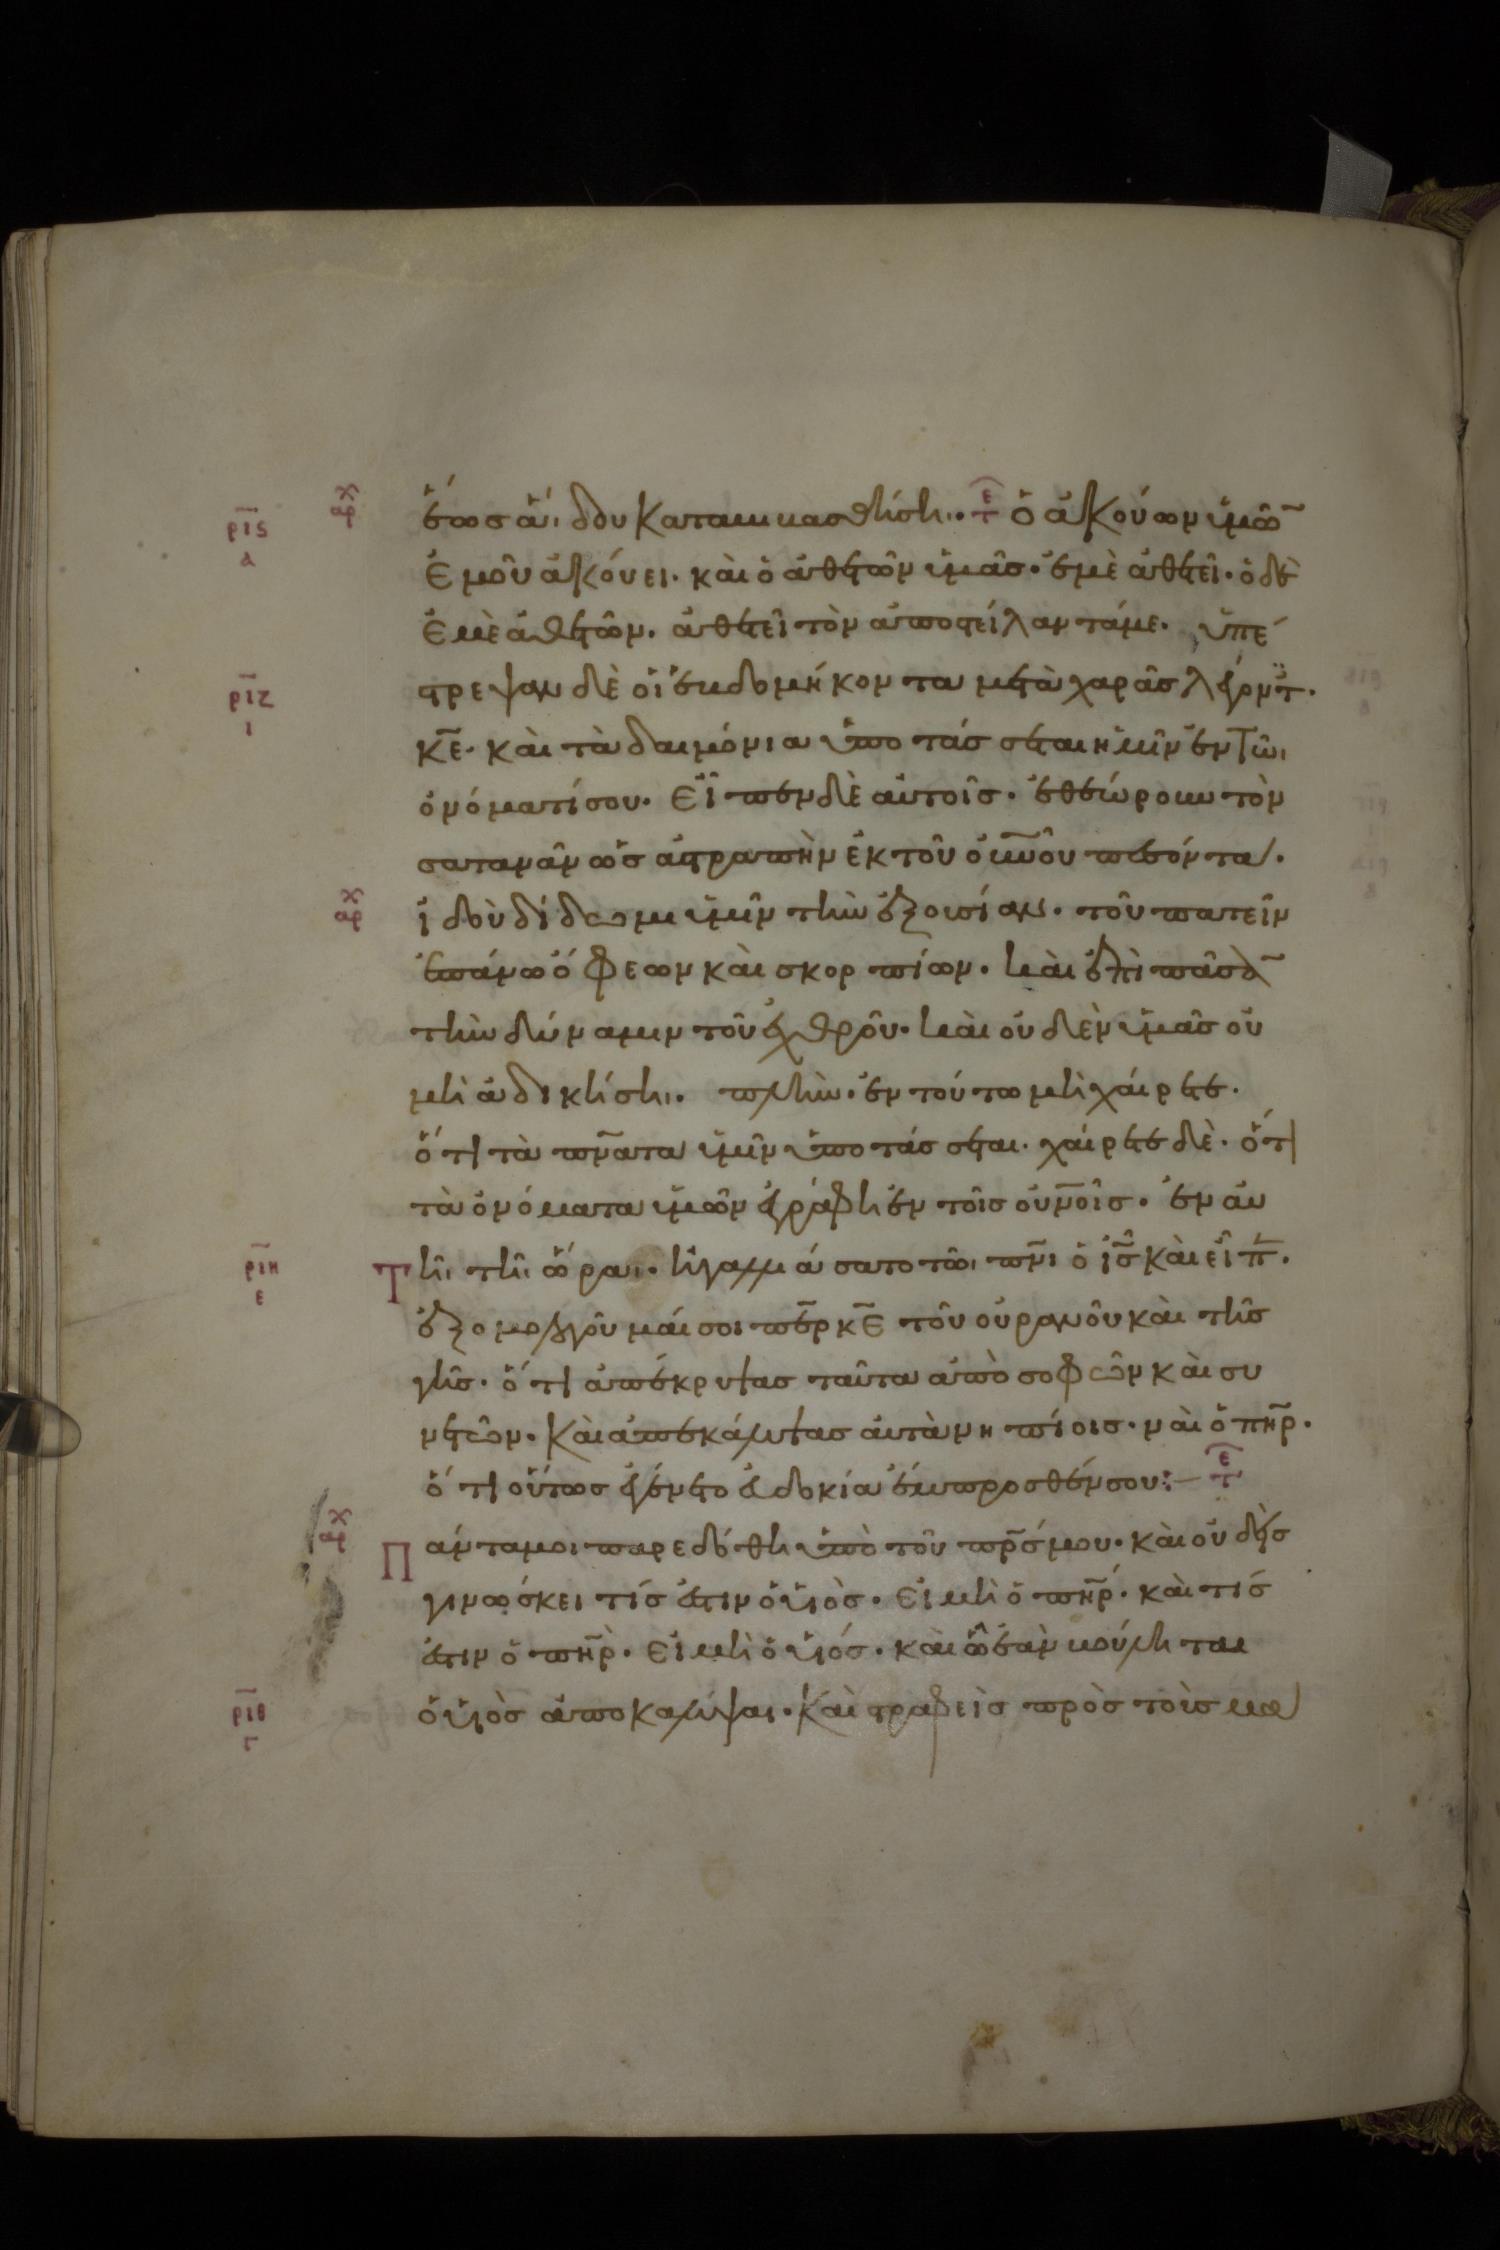 ἕως ἅιδου καταβιβασθήσηι· τε ὁ ἀκούων ὑμῶ̅
ἐμοῦ ἀκούει· καὶ ὁ ἀθετῶν ὑμᾶς· ἐμὲ ἀθετεῖ· ὁ δὲ
ἐμὲ ἀθετῶν· ἀθετεῖ τὸν ἀποστείλαντά με· ὑπέ
στρεψαν δὲ οἱ ἑβδομήκοντα μετὰ χαρᾶς λέγοντ·
κ̅ε̅· καὶ τὰ δαιμόνια ὑποτάσσεται ἡμῖν ἐν τῶι
ὀνόματί σου· εἶπεν δὲ αὐτοῖς· ἐθεώρουν τὸν
σατανᾶν ὡς ἀστραπὴν ἐκ τοῦ ου̅νου πεσόντα·
ἰδοὺ δίδωμι ὑμῖν τὴν ἐξουσίαν· τοῦ πατεῖν
ἐπάνω ὄφεων καὶ σκορπίων· καὶ ἐπὶ πᾶσα̅
τὴν δύναμιν τοῦ ἐχθροῦ· καὶ οὐδὲν ὑμᾶς οὐ
μὴ ἀδικήσηι· πλὴν· ἐν τούτω μὴ χαίρετε·
ὅτι τὰ πν̅ατα ὑμῖν ὑποτάσσεται· χαίρετε δὲ· ὅτι
τὰ ὀνόματα ὑμῶν ἐγράφη ἐν τοῖς οὐν̅οῖς· ἐν αὐ
τῆι τῆι ὥραι· ἠγαλλιάσατο τῶι πν̅ι ὁ ι̅ς̅ καὶ εἶπ·
ἐξομολογοῦμαί σοι πε̅ρ κ̅ε̅ τοῦ οὐρανοῦ καὶ τῆς
γῆς· ὅτι ἀπέκρυψας ταῦτα ἀπὸ σοφῶν καὶ συ
νετῶν· καὶ ἀπεκάλυψας αὐτὰ νηπίοις· ναὶ ὁ πη̅ρ·
ὅτι οὕτως ἐγένετο εὐδοκία ἔμπροσθέν σου:— τε
Πάντα μοι παρεδόθη ὑπὸ τοῦ πρ̅ς μου· καὶ οὐδεὶς
γινώσκει τίς ἐστιν ὁ υἱὸς· εἰ μὴ ὁ πη̅ρ· καὶ τίς
ἐστιν ὁ πη̅ρ· εἰ μὴ ὁ υἱός· καὶ ὧ ἐὰν βούληται
ὁ υἱὸς ἀποκαλύψαι· καὶ στραφεὶς πρὸς τοὺς μα
αρχ
ρι̅ς
α
ρι̅ζ
ι
αρχ
ρι̅η
ε
αρχ
ρι̅θ
γ